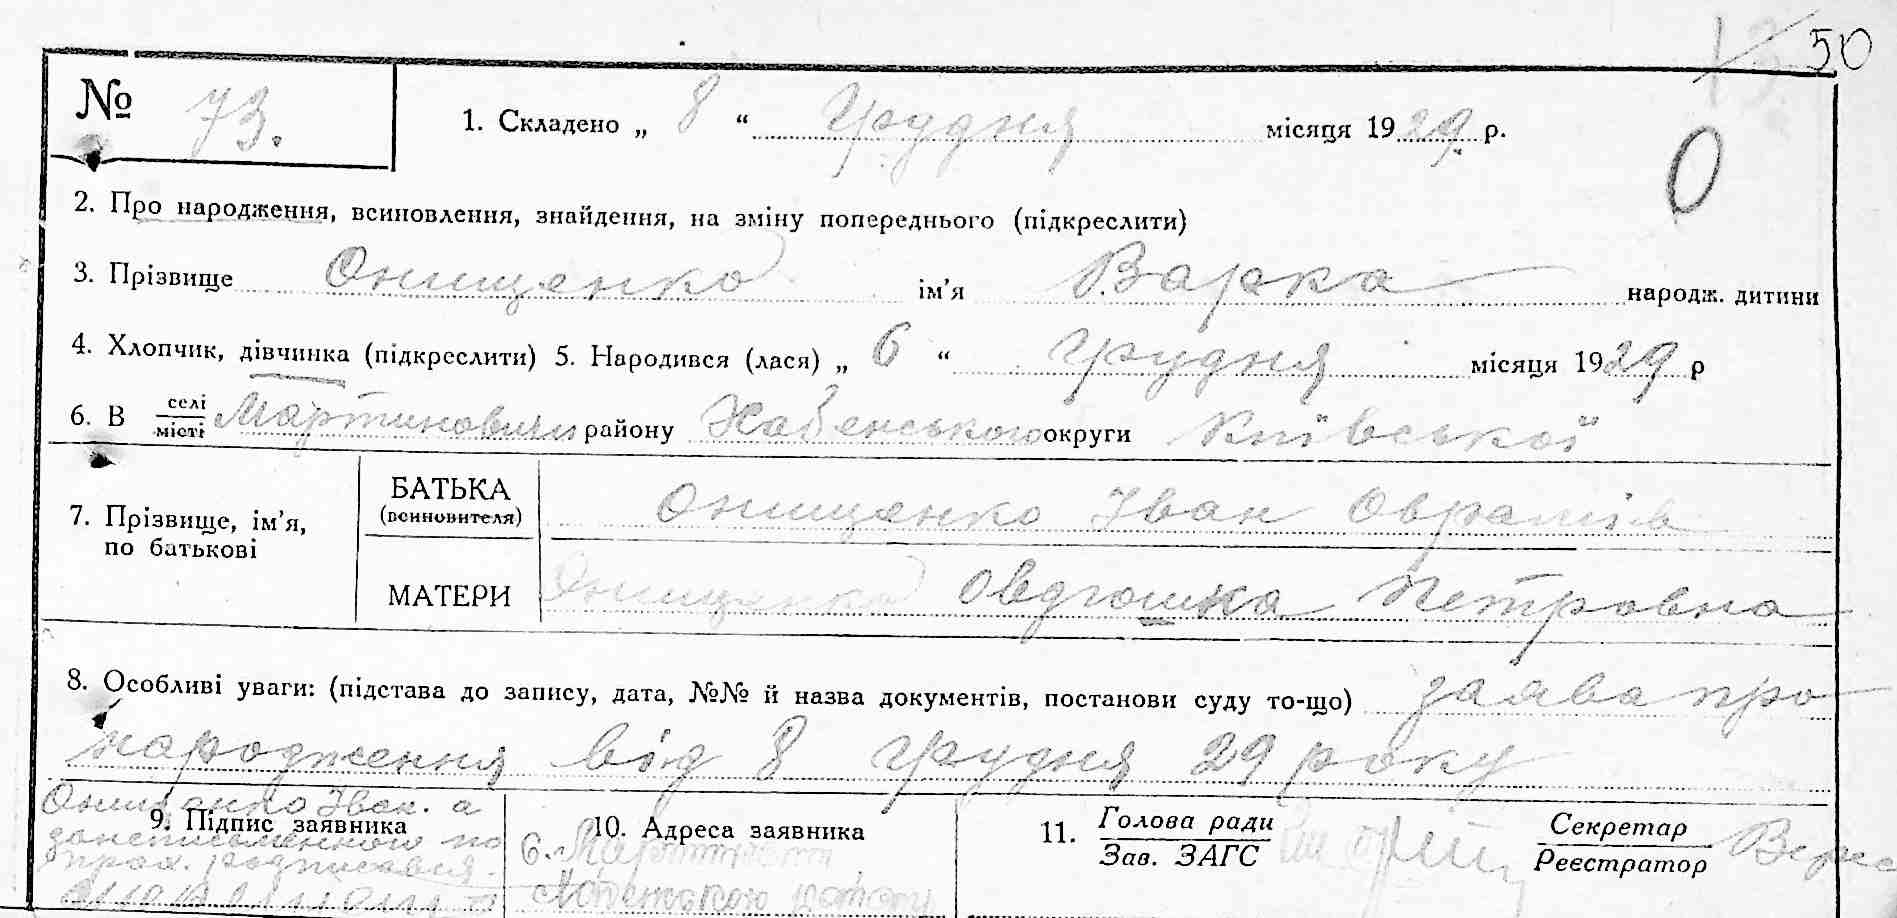 50
№ 73.
1. Складено „ 8 “ грудня місяця 1929 р.
0
2. Про народження, всиновлення, знайдення, на зміну попереднього (підкреслити)
3. Прізвище Онищенко ім’я Варка народж. дитини
4. Хлопчик, дівчинка (підкреслити) 5. Народився (лася) „ 6 “ грудня місяця 1929 р
6. В селі місті Мартиновичи району Хабенського округи Київської
7. Прізвище, ім’я, по батькові
БАТЬКА (всиновителя) Онищенко Іван Оврамів
МАТЕРИ Онищенко Овдюшка Петровна
8. Особливі уваги: (підстава до запису, дата, №№ й назва документів, постанови суду то-що) заява про
народження від 8 грудня 29 року
9. Підпис заявника
Онищенко Іван. а
10. Адреса заявника
с.
11. Голова ради
Зав. ЗАГС
Секретар
Реєстратор